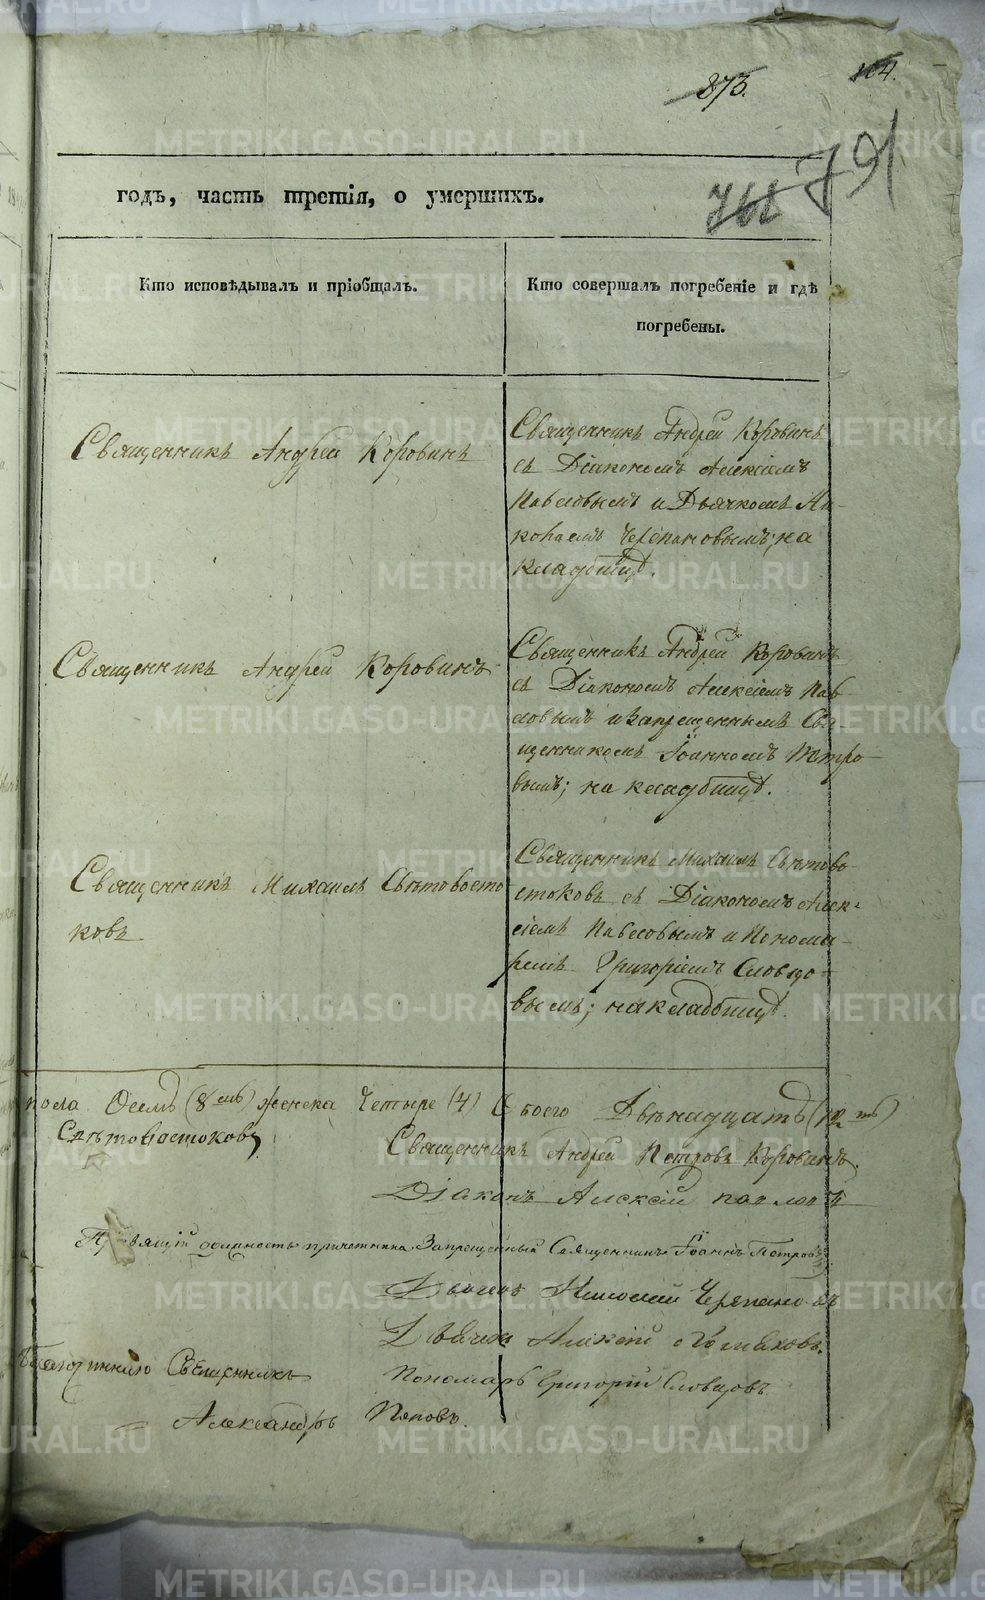 873.
104.
791
годъ, часть третія, о умершихъ.
Кто исповѣдывалъ и пріобщалъ.
Кто совершалъ погребеніе и гдѣ
погребены.
Священникъ Андрей Коровинъ
Священникъ Андрей Коровинъ
съ Діакономъ Алексіемъ
Павловымъ и Дьячкомъ Ни-
колаемъ Черепановымъ; на
кладбищѣ.
Священникъ Андрей Коровинъ
Священникъ Андрей Коровинъ
съ Діакономъ Алексіемъ Пав-
ловымъ и запрещеннымъ Свя-
щенникомъ Іоанномъ Петро-
вымъ; на кладбищѣ.
Священникъ Михаилъ Свѣтовосто
ковъ
Священникъ Михаилъ Свѣтово-
стоковъ съ Діакономъ Алек-
сіемъ Павловымъ и Понома-
ремъ Григоріемъ Словцо-
вымъ; на кладбищѣ.
пола Осемь (8емь) женска Четыре (4) Обоего Двѣнадцать (12ть)
Свѣтовостоковъ
Священникъ Андрей Петровъ Коровинъ.
Діаконъ Алексѣй Павловъ
Правящій должность причетника Запрещенный Священникъ Іоаннъ Петровъ
Дьячекъ Николай Черепановъ
Дьячекъ Алексѣй
Благочинный Священникъ
Пономарь Григорій Словцовъ
Александръ Поповъ.
METRIKI.GASO-URAL.RU